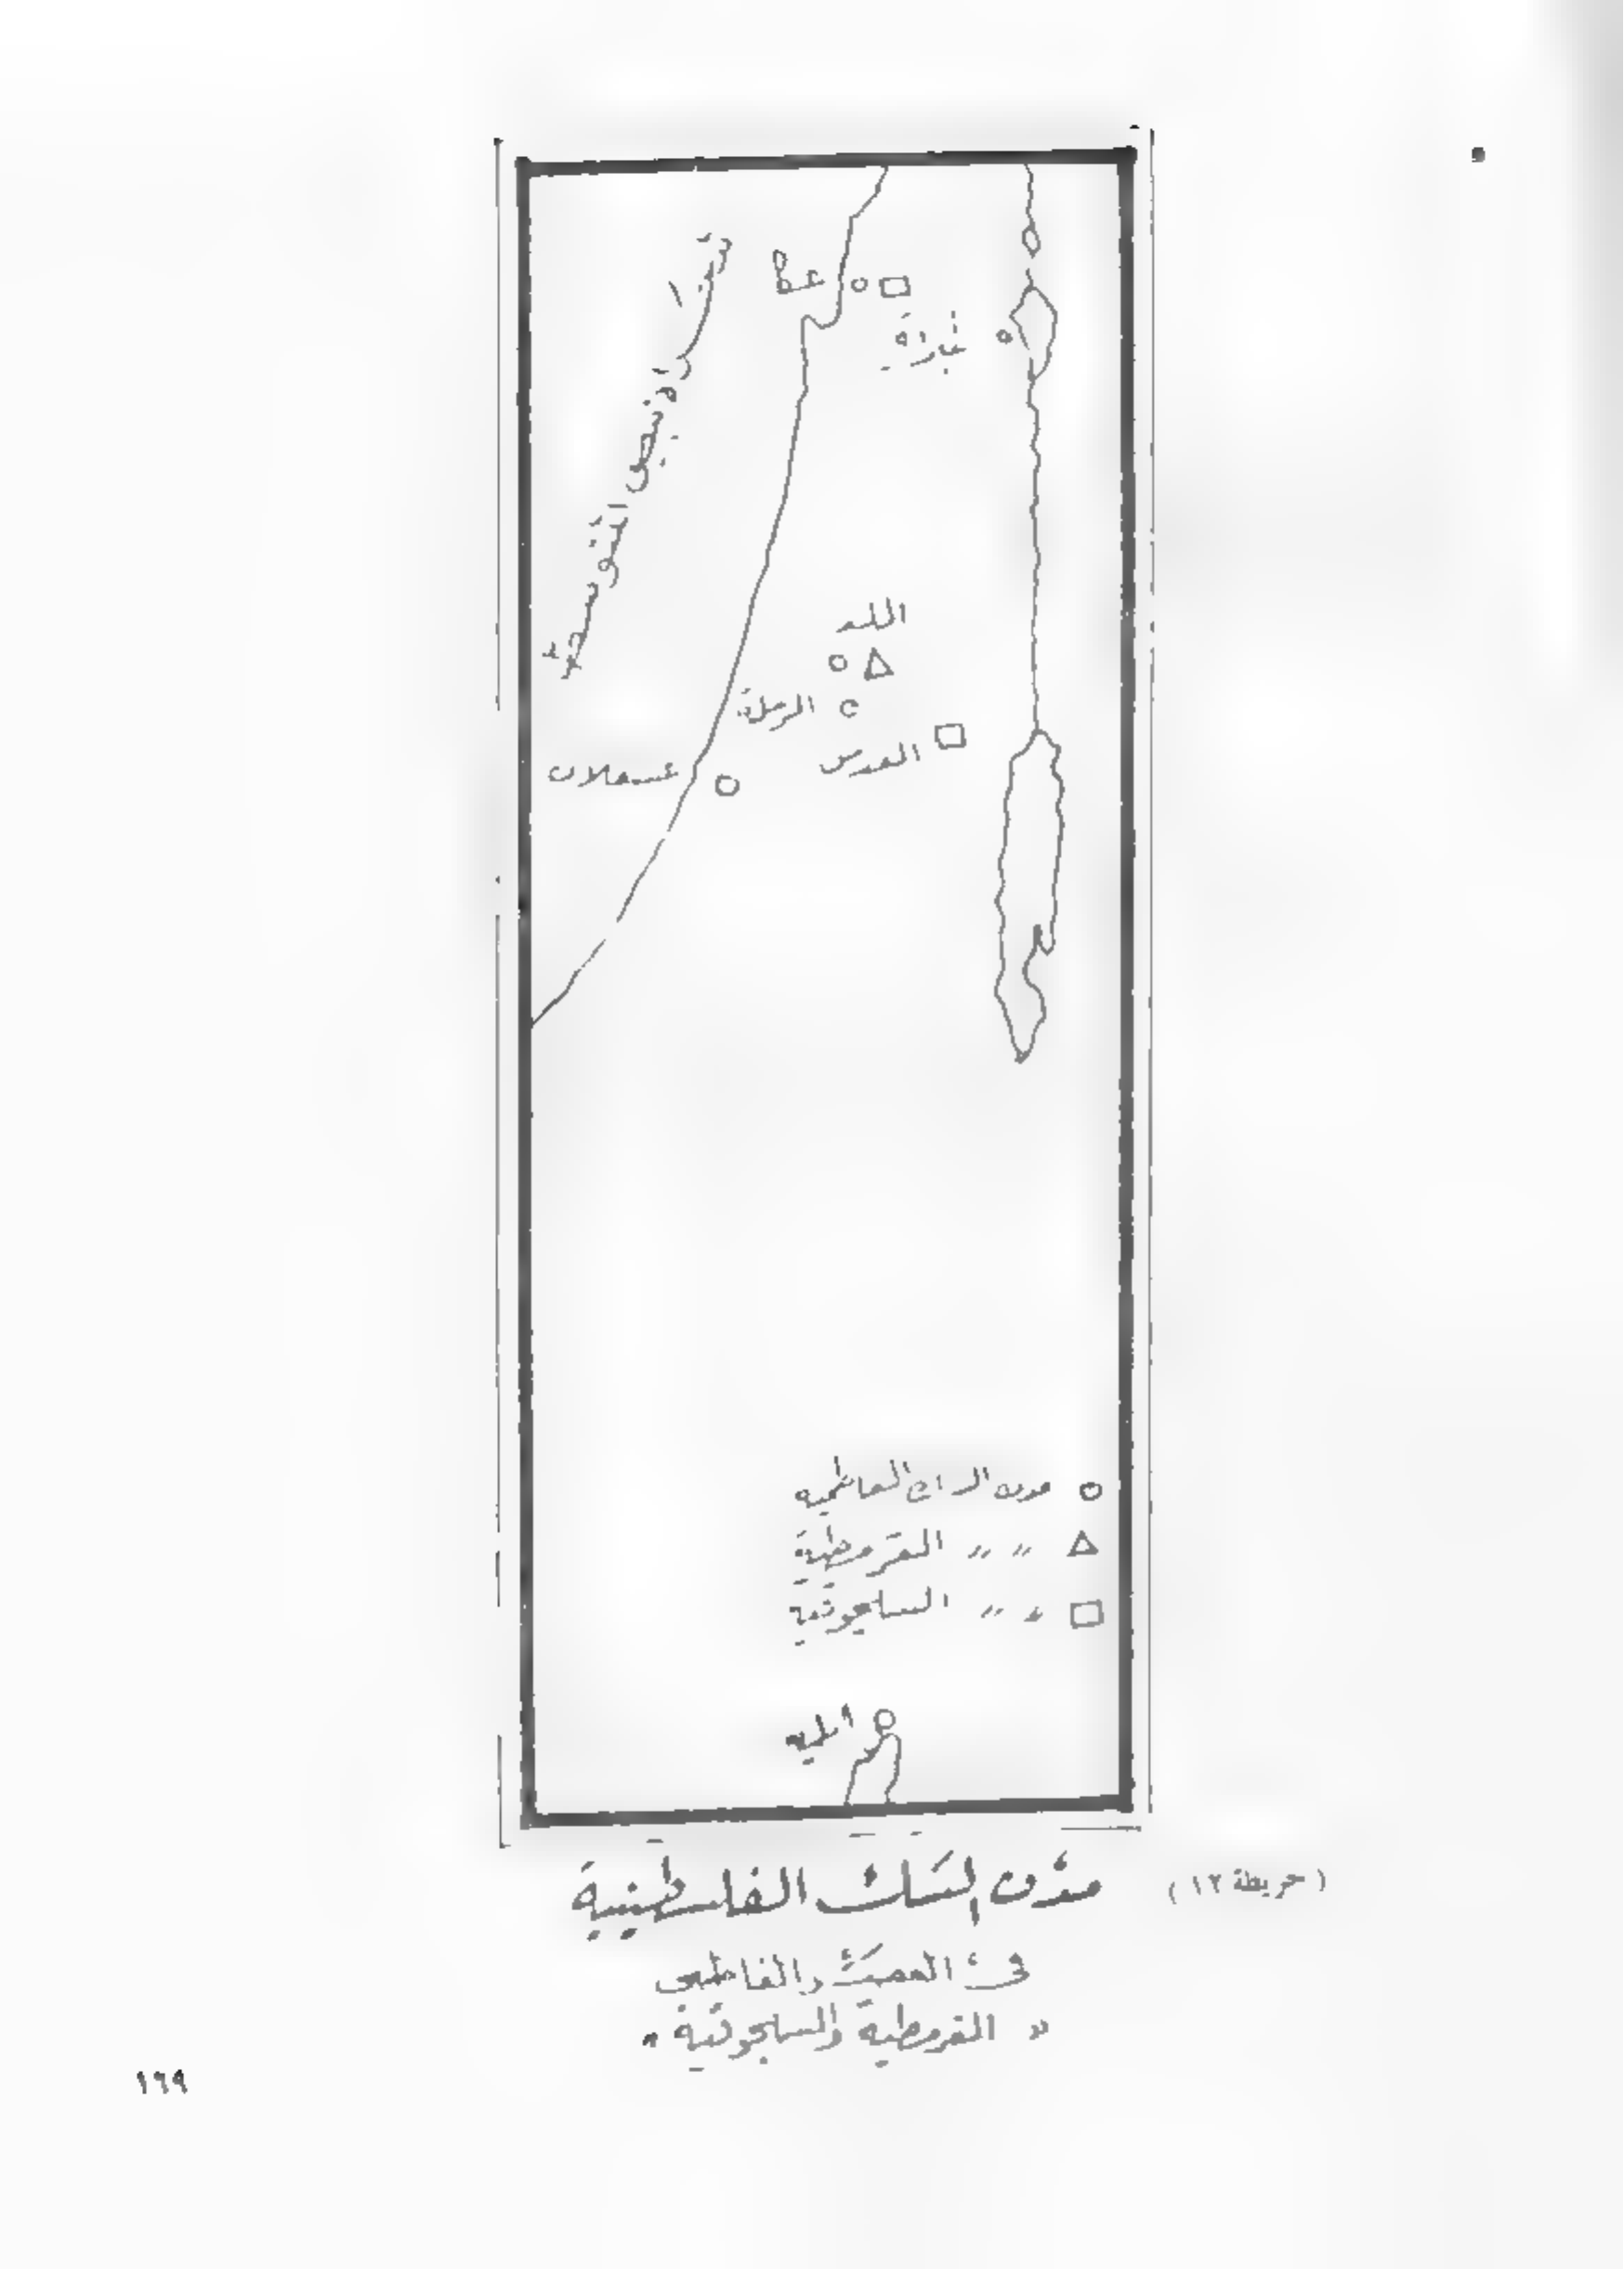 البحر الأبيض المتوسط
عكا
طبرية
اللد
الرملة
القدس
عسقلان
مدن السك الفاطمية
〃 〃 القرمطية
〃 〃 السلجوقية
ايلية
(خريطة ١٢)
مدن السك الفلسطينية
في العصر الفاطمي
« القرمطية والسلجوقية »
١٦٩